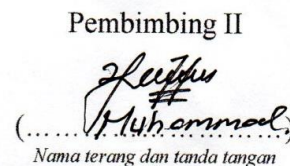 Pembimbing II
(.......Muhammad.)
Nama terang dan tanda tangan